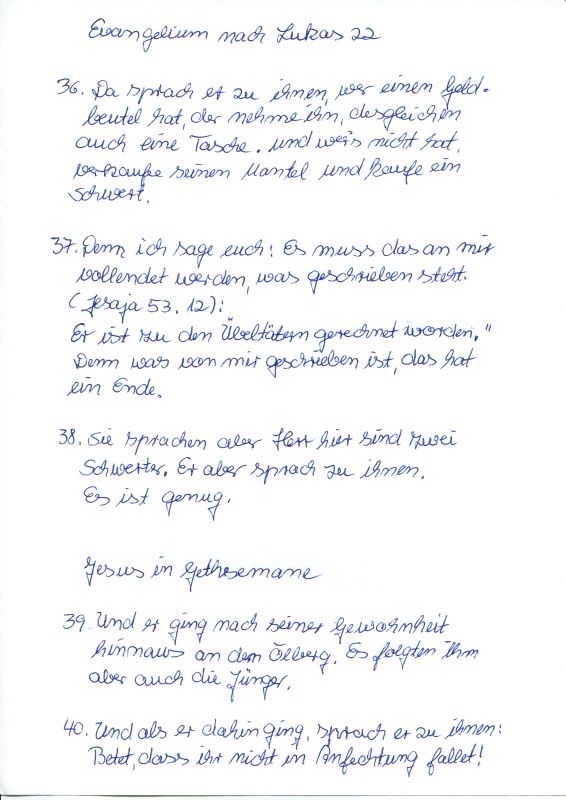 Evangelium nach Lukas 22
36. Da sprach er zu ihnen, wer einen Geld-
beutel hat, der nehme ihn, desgleichen
auch eine Tasche. und wer's nicht hat,
verkaufe seinen Mantel und kaufe ein
Schwert.
37. Denn ich sage euch: Es muss das an mir
vollendet werden, was geschrieben steht.
(Jesaja 53. 12):
Er ist zu den Übeltätern gerechnet worden."
Denn was von mir geschrieben ist, das hat
ein Ende.
38. Sie sprachen aber Herr hier sind zwei
Schwerter. Er aber sprach zu ihnen.
Es ist genug.
Jesus in Gethsemane
39. Und er ging nach seiner Gewohnheit
hinnaus an dem Ölberg. Es folgten Ihm
aber auch die Jünger.
40. Und als er dahin ging, sprach er zu ihnen:
Betet, dass ihr nicht in Anfechtung fallet!